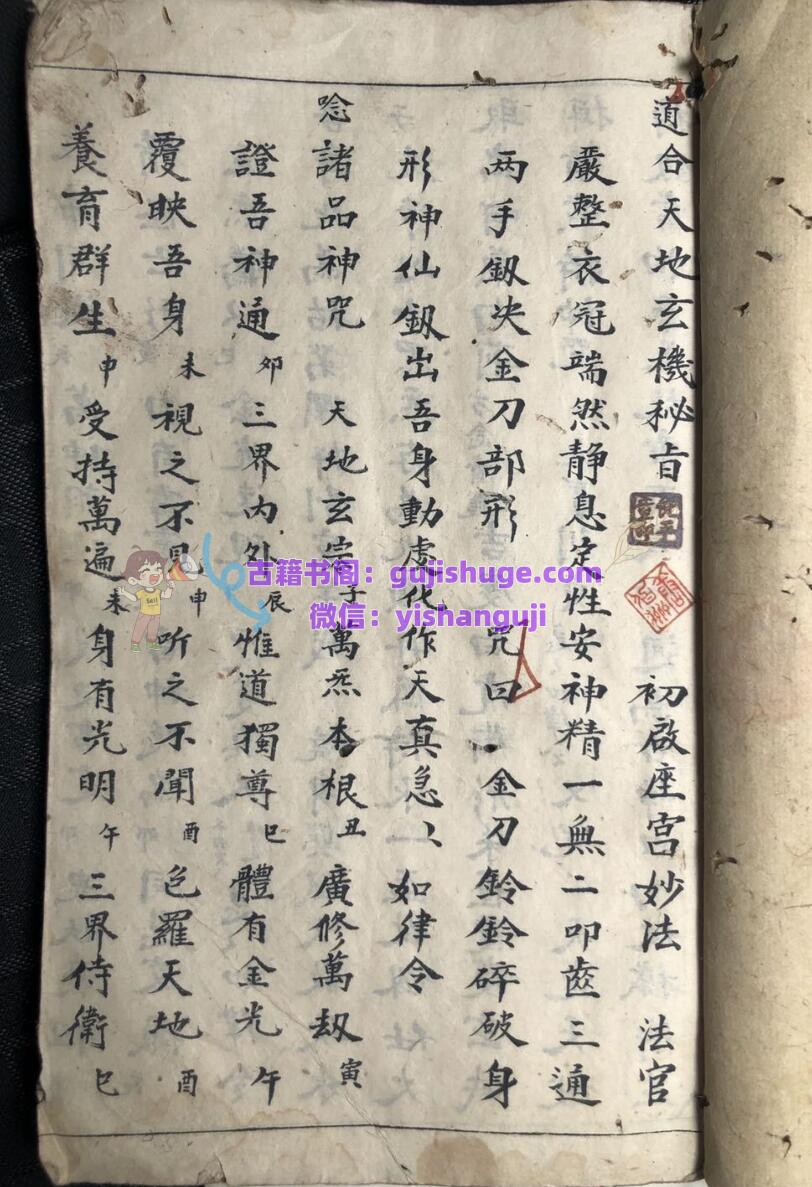 道合天地玄機秘旨 初啟座宫妙法 法官
嚴整衣冠端然静息定性安神精一無二叩齒三通
两手釼决金刀部形 咒曰 金刀鈴鈴碎破身
形神仙釼出吾身動處化作天真急〻如律令
唸諸品神咒 天地玄宗子萬炁本根丑廣修萬劫寅
證吾神通卯三界内外辰惟道獨尊巳體有金光午
覆映吾身未視之不見申听之不聞酉色羅天地酉
養育群生申受持萬遍未身有光明午三界侍衛巳
古籍书阁：gujishuge.com
微信：yishanguji
Sell